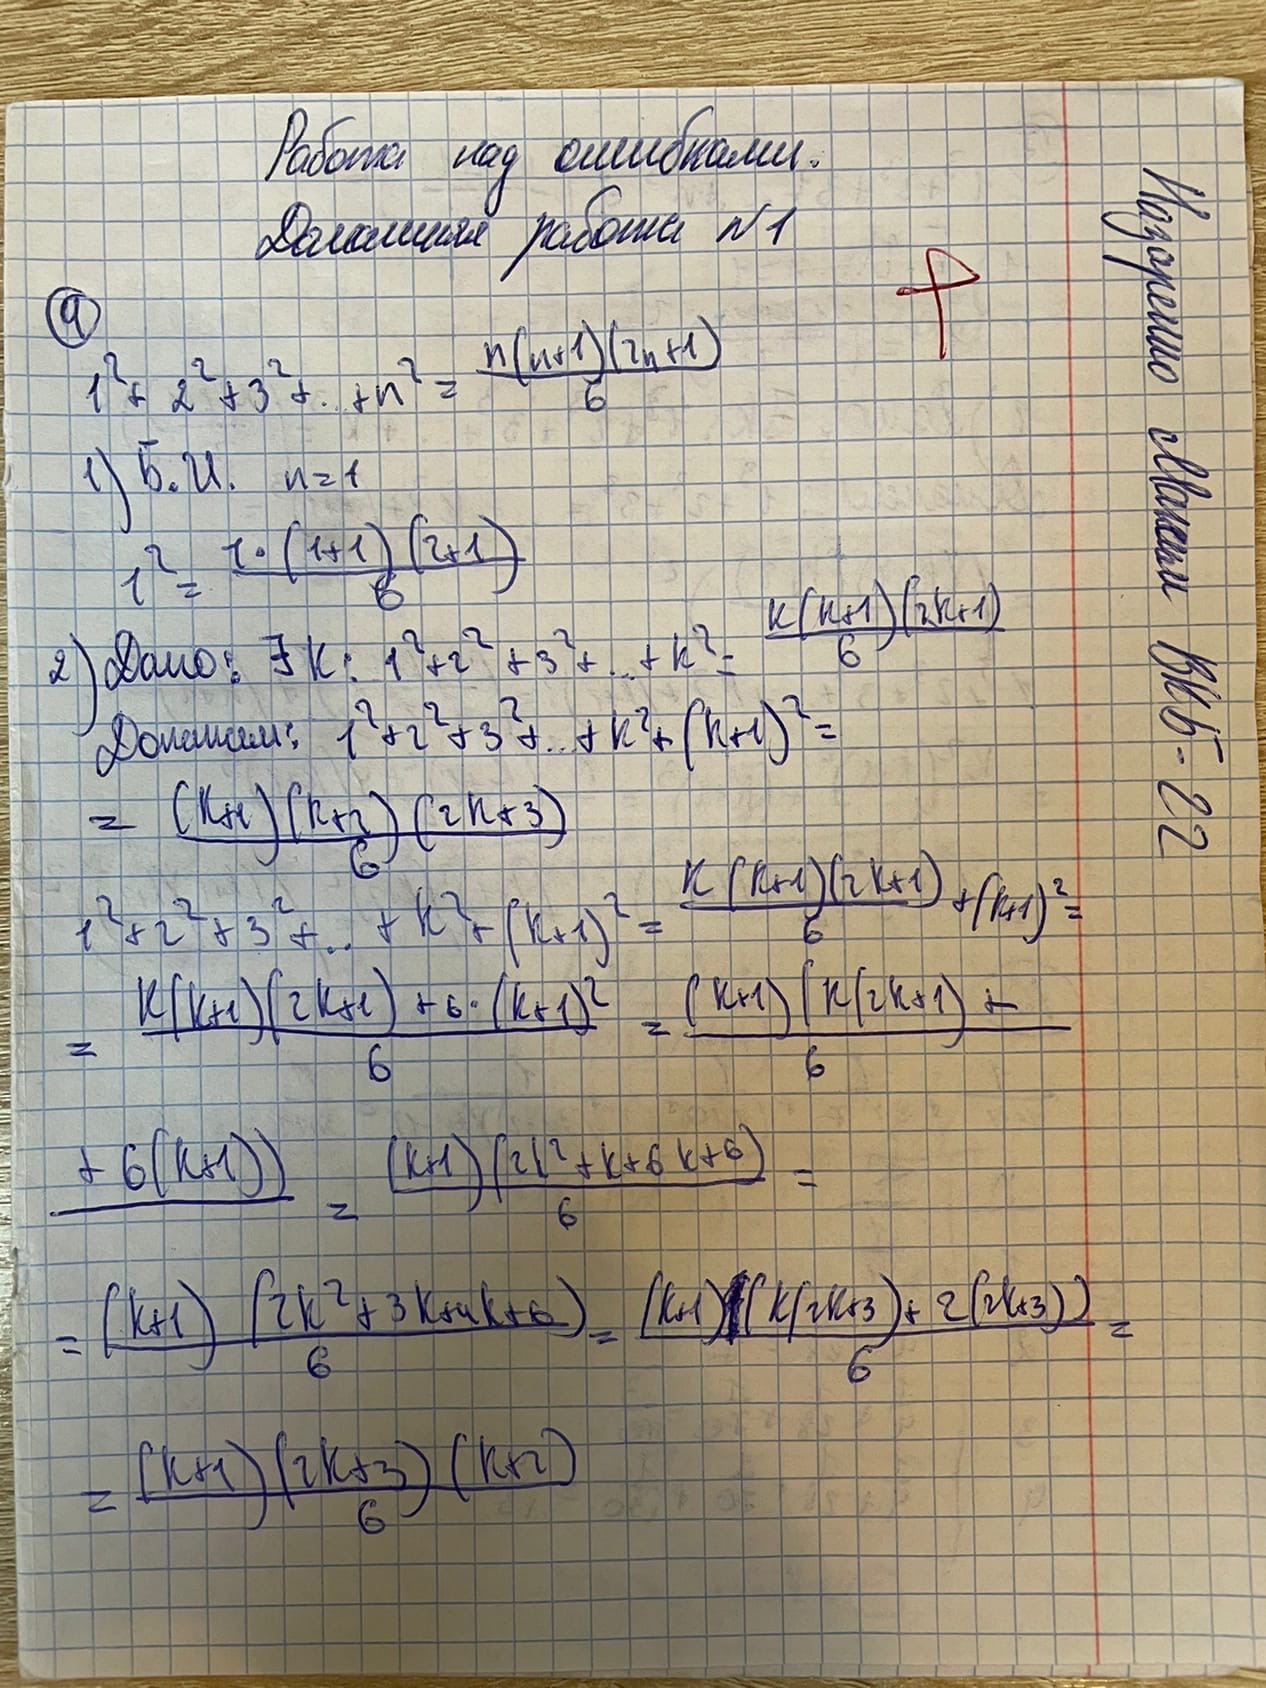 Работа над ошибками.
Домашняя работа N1
9
1² + 2² + 3² + .. + n² = n(n+1)(2n+1) / 6
1) Б.И. n=1
1² = 1·(1+1)(2+1) / 6
2) Дано: ∃ k: 1²+2²+3²+...+k² = k(k+1)(2k+1) / 6
Докажем: 1²+2²+3²+..+k²+(k+1)² =
= (k+1)(k+2)(2k+3) / 6
1²+2²+3²+.. +k²+(k+1)² = k(k+1)(2k+1) / 6 +(k+1)² =
= k(k+1)(2k+1) + 6·(k+1)² / 6 = (k+1)(k(2k+1) + / 6
+ 6(k+1)) = (k+1)(2k²+k+6k+6) / 6 =
= (k+1) (2k²+3k+4k+6) / 6 = (k+1)(k(2k+3)+2(2k+3)) / 6 =
= (k+1)(2k+3)(k+2) / 6
ВКБ-22